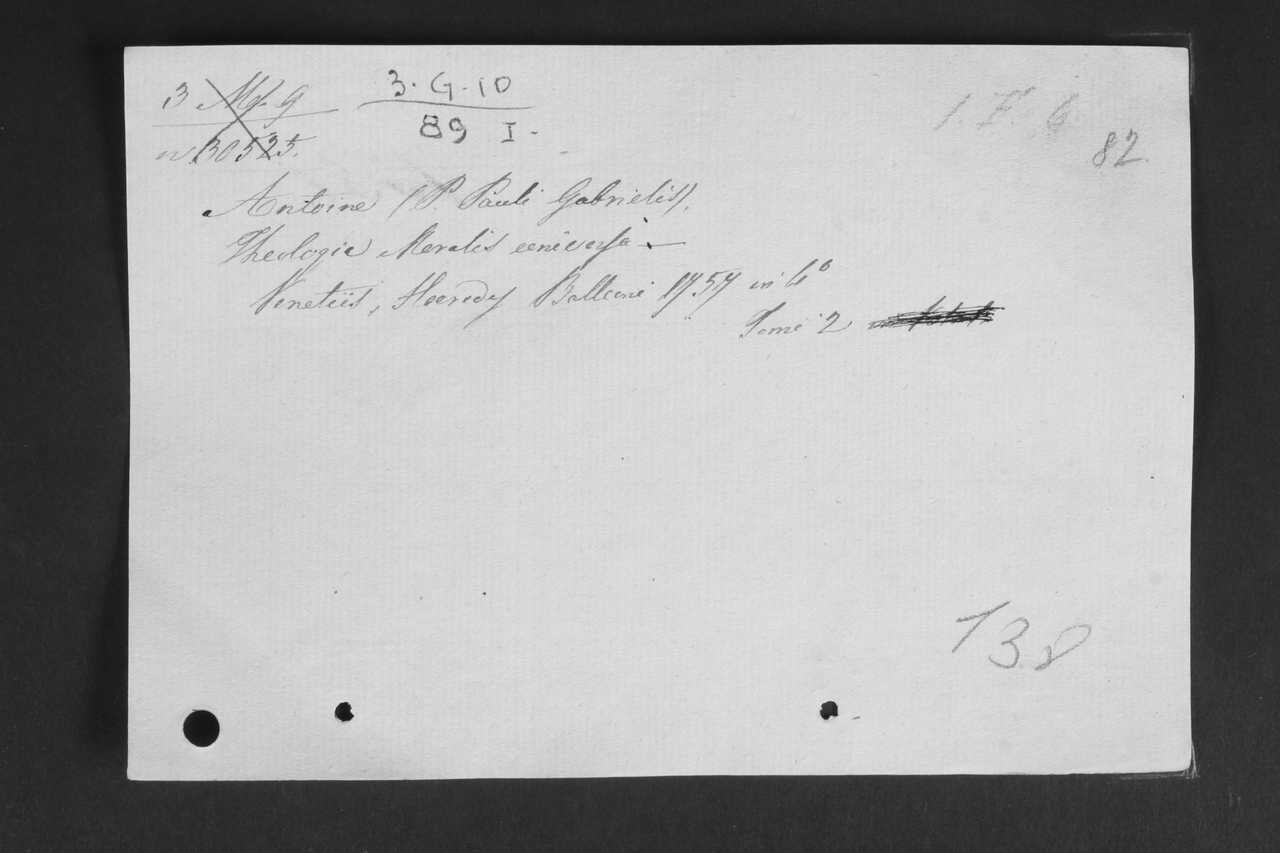 3 3. G. 10
n 30525. 89 I.
1. F. 6
82
Antoine (P. Pauli Gabrielis),
Theologia Moralis universa.
Venetiis, Balleoni 1757 in 4º
Tomi 2
138